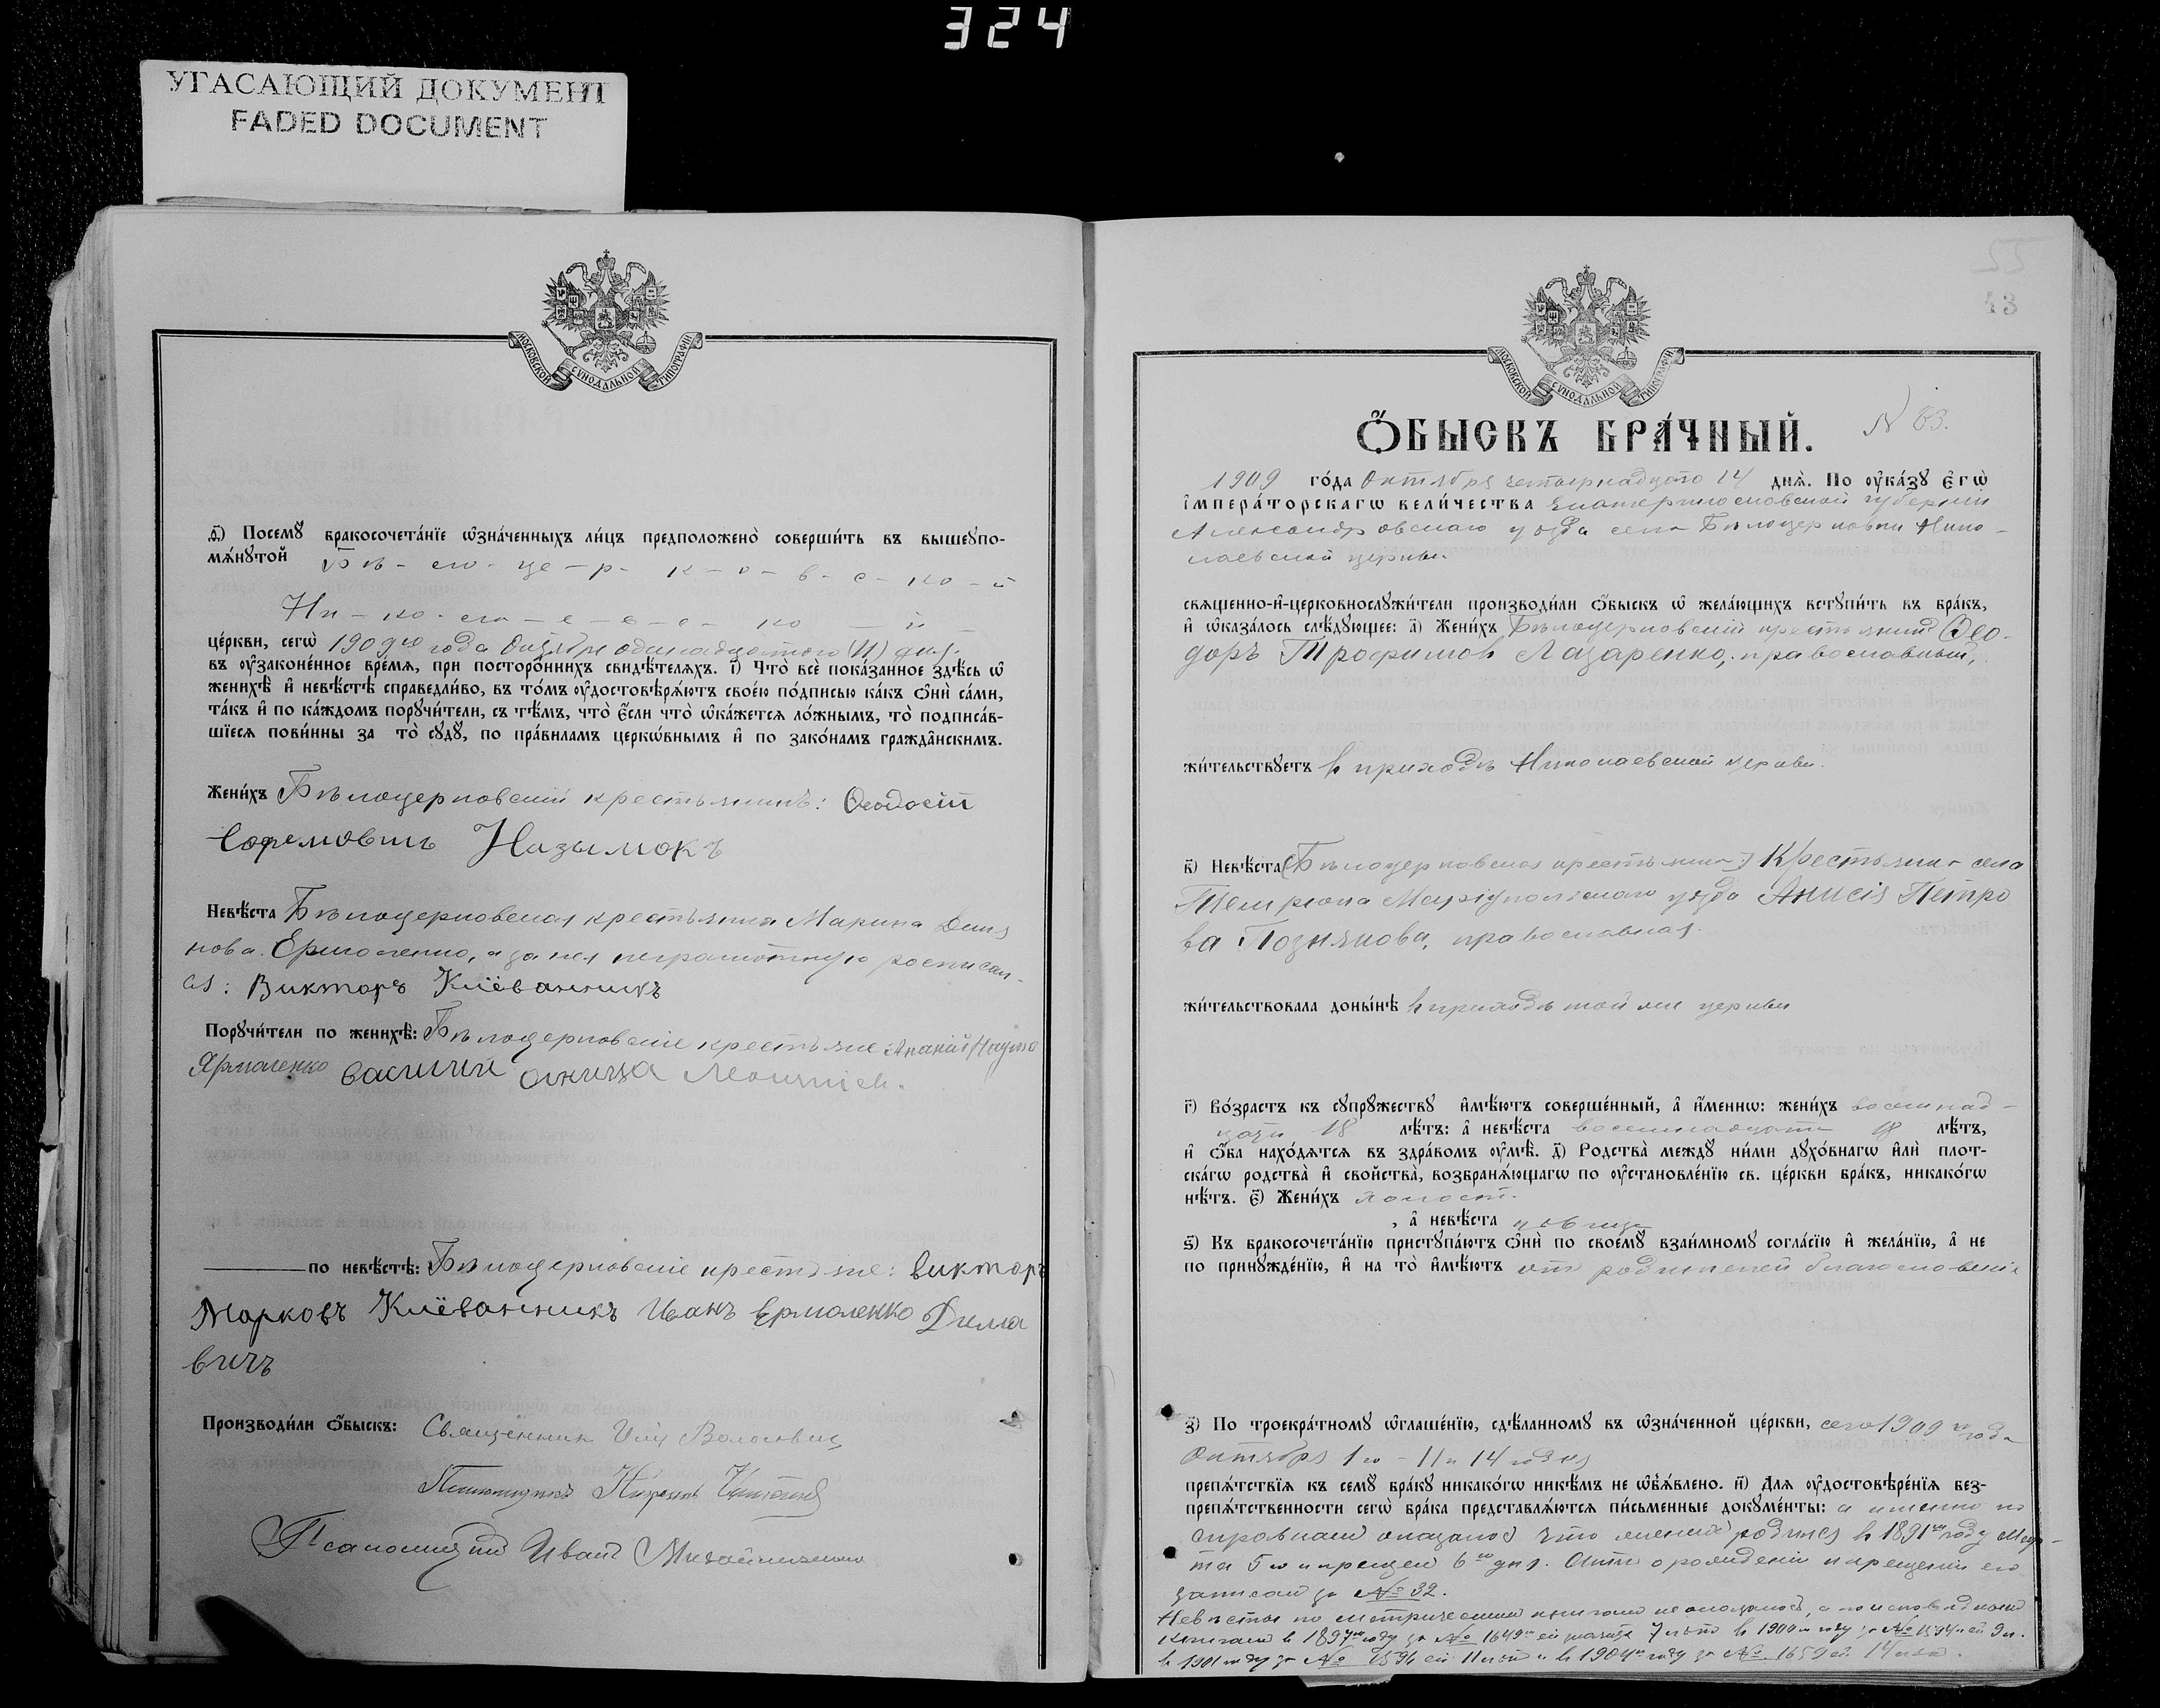 324
УГАСАЮЩИЙ ДОКУМЕНТ
FADED DOCUMENT
МОСКОВСКОЙ СѴНОДАЛЬНОЙ ТИПОГРАФІИ
ѳ҃) Посемꙋ̀ бракосочета́нїе ѡ҆зна́ченныхъ ли́цъ предположено̀ соверши́ть въ вышеꙋпо-
мѧ́нꙋтой Бѣ-ло-це-р-к-о-в-с-ко-й
Ни-ко-ла-е-в-с-ко-й
це́ркви, сегѡ̀ 1909го года Октября одинадцатого (11) дня
въ ᲂу҆зако́ненное вре́мѧ, при посторо́ннихъ свидѣ́телѧхъ. і҃) Что̀ всѐ пока́занное здѣ́сь ѡ҆
женихѣ̀ и҆ невѣ́стѣ справедли́во, въ то́мъ ᲂу҆достовѣрѧ́ютъ свое́ю по́дписью ка́къ ѻ҆нѝ са́ми,
та́къ и҆ по ка́ждомъ порꙋчи́тели, съ тѣ́мъ, что̀ є҆́сли что̀ ѡ҆ка́жетсѧ ло́жнымъ, то̀ подписа́в-
шїесѧ пови́нны за то̀ сꙋдꙋ̀, по пра́виламъ церко́внымъ и҆ по зако́намъ гражда̑нскимъ.
Жени́хъ Бѣлоцерковскій крестьянинъ: Ѳеодосій
Ефремовичь Назымокъ
Невѣ́ста Бѣлоцерковская крестьянка Марина Демя
нова Ермоленко, а за нея неграмотную росписал-
ся: Викторъ Кіёванникъ
Порꙋчи́тели по женихѣ̀: Бѣлоцерковскіе крестьяне: Ананій Наумо
Ярмоленко василий
по невѣ́стѣ: Бѣлоцерковскіе крестьяне: викторъ
Марковъ Кіёванникъ Иванъ Ермоленко Дема
вичъ
Производи́ли ѻ҆́быскъ: Священник Илія
Псаломщик Иван Михайличенко
43
МОСКОВСКОЙ СѴНОДАЛЬНОЙ ТИПОГРАФІИ
Ѻ҆́БЫСКЪ БРА́ЧНЫЙ. N 63.
1909 го́да Октября четырнадцато 14 днѧ̀. По ᲂу҆ка́зꙋ є҆гѡ̀
і҆мпера́торскагѡ вели́чества Екатеринославской губерніи
Александровскаго уѣзда села Бѣлоцерковки Нико-
лаевской церкви
свѧще́нно-и҆-церковнослꙋжи́тели производи́ли ѻ҆́быскъ ѡ҆ жела́ющихъ встꙋпи́ть въ бра́къ,
и҆ ѡ҆каза́лось слѣ́дꙋющее: а҃) Жени́хъ Бѣлоцерковскій крестьянин Ѳео-
доръ Трофимов Лазаренко, православный,
жи́тельствꙋетъ в приходѣ Николаевской церкви.
в҃) Невѣ́ста (Бѣлоцерковская крестьянка) Крестьянка села
Темрюка Маріупольскаго уѣзда Анисія Петро
ва Познякова, православная.
жи́тельствовала доны́нѣ в приходѣ той же церкви
г҃) Во́зрастъ къ сꙋпрꙋжествꙋ̀ и҆мѣ́ютъ соверше́нный, а҆ и҆́меннѡ: жени́хъ восемнад-
цати 18 лѣ́тъ: а҆ невѣ́ста восемнадцати 18 лѣ́тъ,
и҆ ѻ҆́ба нахо́дѧтсѧ въ здра́вомъ ᲂу҆мѣ̀. д҃) Родства̀ междꙋ̀ ни́ми дꙋхо́внагѡ и҆лѝ плот-
ска́гѡ родства̀ и҆ сво́йства̀, возбранѧ́ющагѡ по ᲂу҆становле́нїю св. це́ркви бра́къ, никако́гѡ
нѣ́тъ. є҃) Жени́хъ холост.
, а҆ невѣ́ста дѣвица
ѕ҃) Къ бракосочета́нїю пристꙋпа́ютъ ѻ҆нѝ по своемꙋ̀ взаи́мномꙋ согла́сїю и҆ жела́нїю, а҆ не
по принꙋжде́нїю, и҆ на то̀ и҆мѣ́ютъ от родителей благословеніе
з҃) По троекра́тномꙋ ѡ҆глаше́нїю, сдѣ́ланномꙋ въ ѡ҆зна́ченной це́ркви, сего 1909 го года
Октября 1го - 11 и 14 го дня
препѧ́тствїѧ къ семꙋ̀ бра́кꙋ никако́гѡ никѣ́мъ не ѡ҆б̾ѧ́влено. и҃) Длѧ ᲂу҆достовѣре́нїѧ без-
препѧ́тственности сегѡ̀ бра́ка представлѧ́ютсѧ пи́сьменные докꙋме́нты: а именно по
справкам оказалос что жених родился в 1891 м году Мар-
та 5 го и крещен 6 го дня. Акт о рождении и крещении его
записан за № 32.
Невѣсты по метрическим книгам не оказалось, а по исповѣдным
книгам в 1897 м году за № 1649 м ей значится 7 лѣт в 1900 м году за № ей 9 л.
в 1901 м году за № ей 11 лѣт и в 1904 м году за № 1659 ей 14 лѣт.